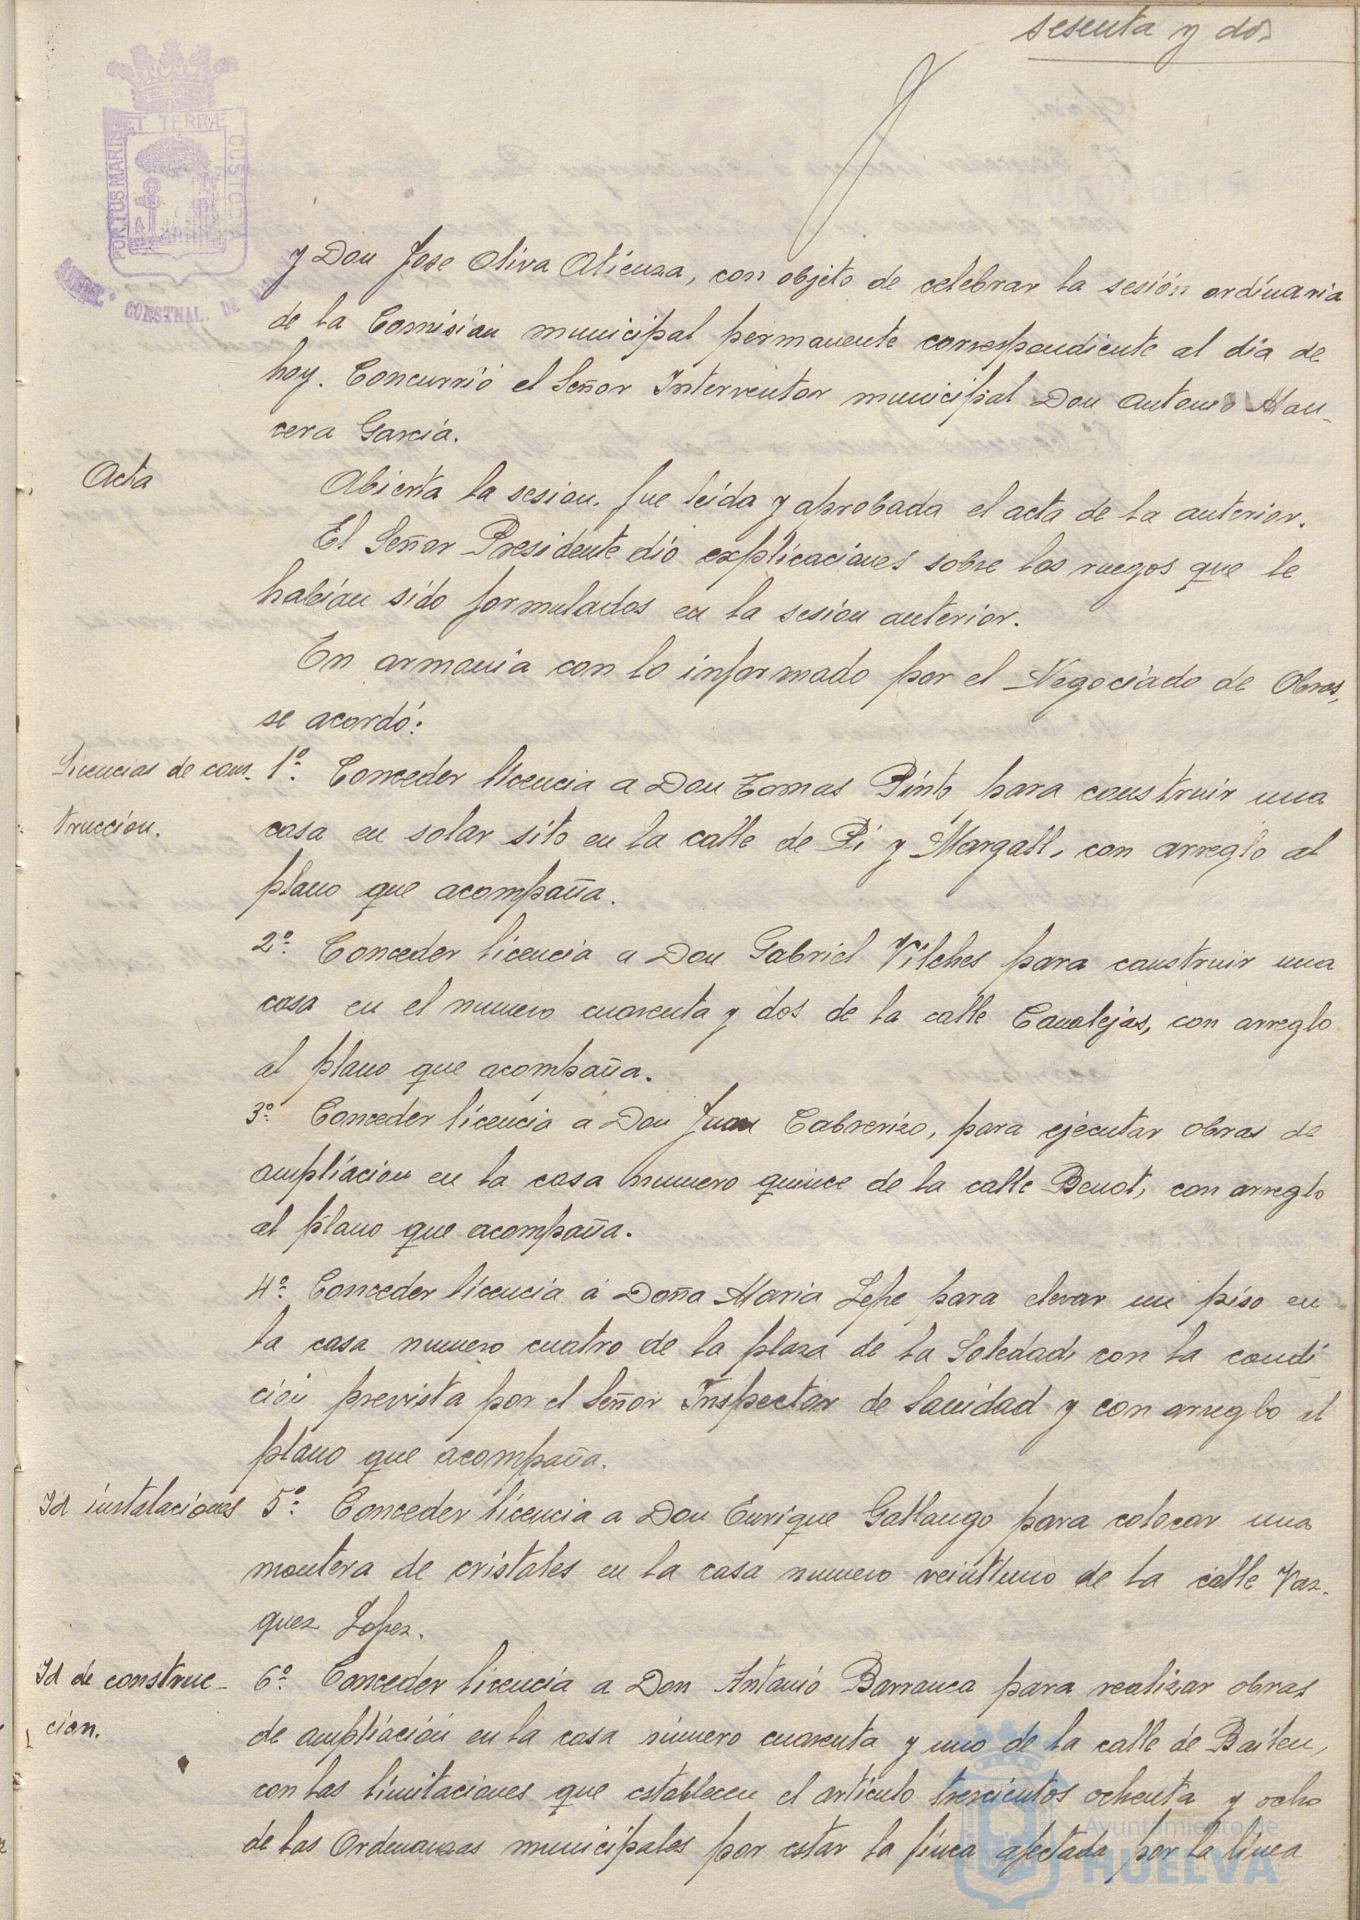 sesenta y dos
PORTUS MARIS ET TERRÆ CUSTODIA
CONSTNAL. DE
y Don Jose Oliva Atienza, con objeto de celebrar la sesión ordinaria
de la Comision municipal permanente correspondiente al dia de
hoy. Concurrió el Señor Interventor municipal Don Antonio Man-
cera García.
Acta
Abierta la sesion, fue leida y aprobada el acta de la anterior.
El Señor Presidente dió explicaciones sobre los ruegos que le
habian sido formulados en la sesion anterior.
En armonia con lo informado por el Negociado de Obras,
se acordó:
Licencias de cons-
truccion.
1º. Conceder licencia a Don Tomas Pinto para construir una
casa en solar sito en la calle de Pi y Margall, con arreglo al
plano que acompaña.
2º. Conceder licencia a Don Gabriel Vilches para construir una
casa en el numero cuarenta y dos de la calle Canalejas, con arreglo
al plano que acompaña.
3º. Conceder licencia a Don Juan Cabrerizo, para ejecutar obras de
ampliacion en la casa numero quince de la calle Benot, con arreglo
al plano que acompaña.
4º. Conceder licencia á Doña Maria Lepe para elevar un piso en
la casa numero cuatro de la plaza de la Soledad, con la condi
ción prevista por el Señor Inspector de Sanidad y con arreglo al
plano que acompaña.
Id instalaciones
5º. Conceder licencia a Don Enrique Gallango para colocar una
montera de cristales en la casa numero veintiuno de la calle Vaz-
quez Lopez.
Id de construc-
cion.
6º. Conceder licencia a Don Antonio Barranca para realizar obras
de ampliación en la casa número cuarenta y uno de la calle de Bailen,
con las limitaciones que establecen el artículo trescientos ochenta y ocho
de las Ordenanzas municipales por estar la finca afectada por la línea
Ayuntamiento de
HUELVA